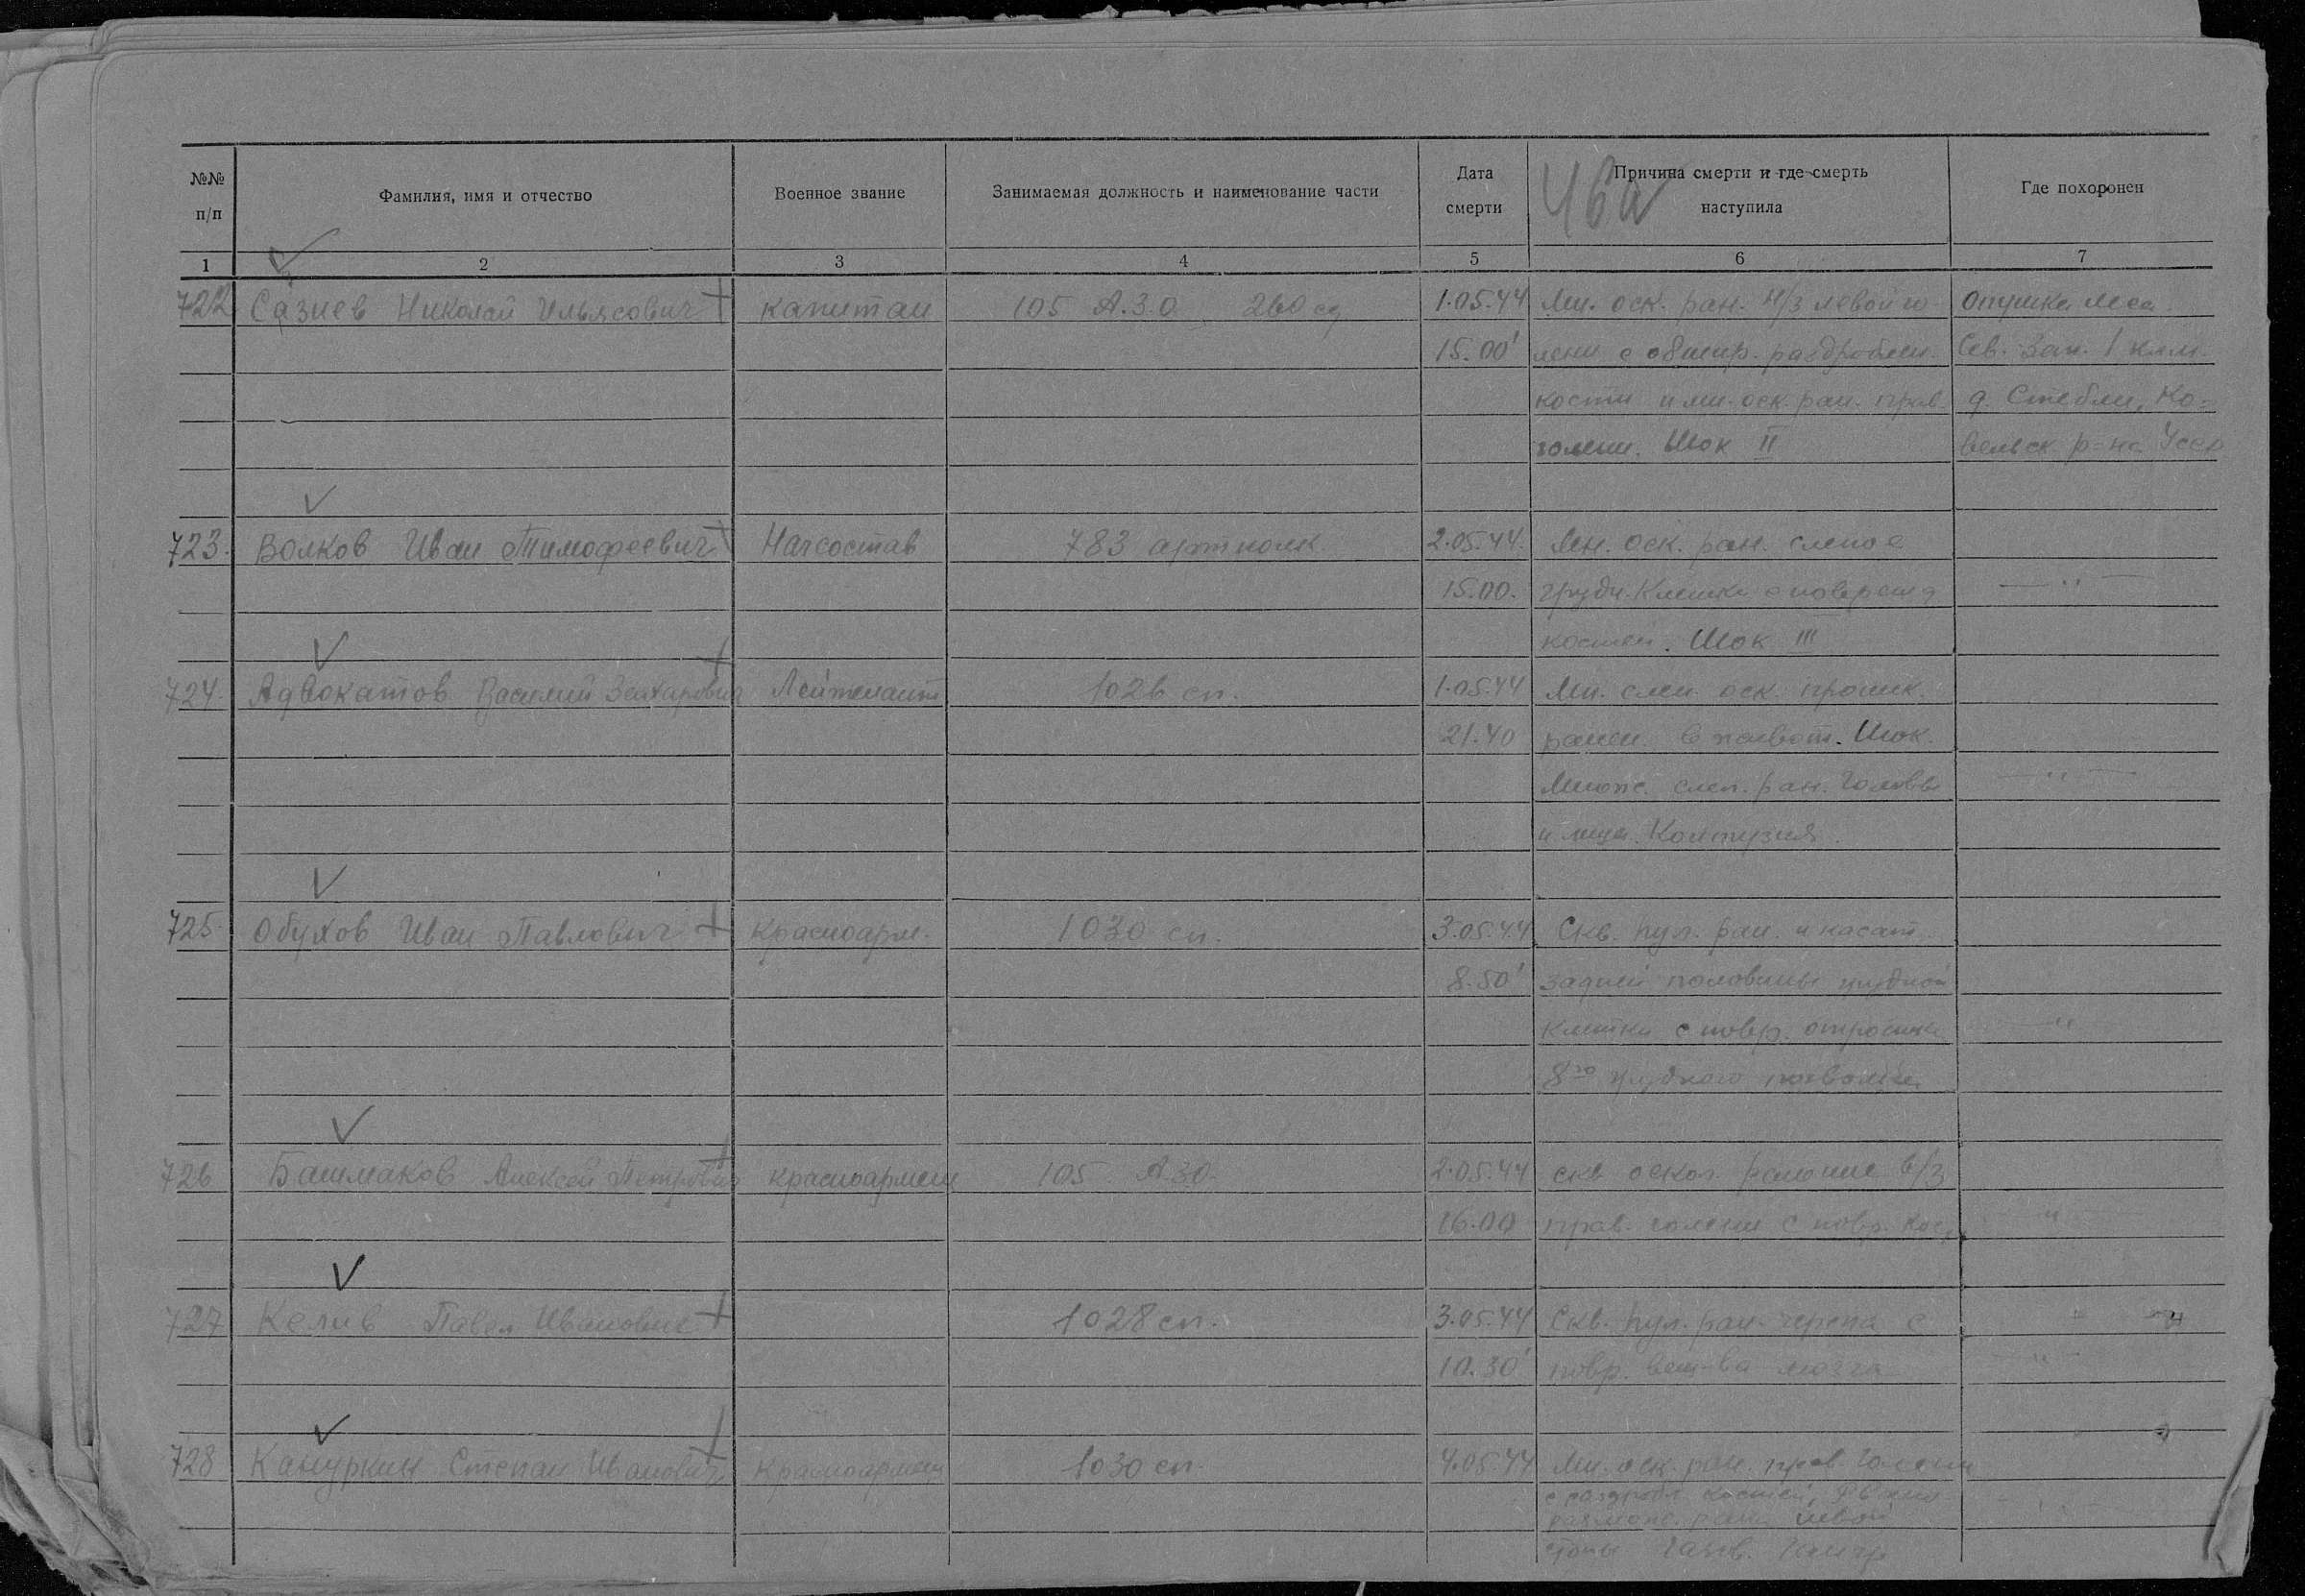 46а
№№ п/п Фамилия, имя и отчество Военное звание Занимаемая должность и наименование части Дата смерти Причина смерти и где смерть наступила Где похоронен
1 2 3 4 5 6 7
722 Сазиев Николай Ильясович + капитан 105 А.З.О. 260 сд 1.05.44 Мн. оск. ран. н/з левой го- Опушка леса
15.00' лени с обшир. раздроблен. Сев. Зап. 1 клм
кости и мн. оск. ран. прав. д. Стебли, Ко-
голени. Шок II вельск р-на УССР
723. Волков Иван Тимофеевич + Начсостав 783 артполк 2.05.44. Мн. оск. ран. слепое
15.00. грудн. клетки с поврежд — " —
костей. Шок III
724. Адвокатов Василий Захарович + Лейтенант 1026 сп. 1.05.44 Мн. слеп. оск. проник.
21.40 ранен. в живот. Шок.
Множ. слеп. ран. головы — " —
и лица. Контузия.
725. Обухов Иван Павлович + Красноарм. 1030 сп. 3.05.44 Скв. пул. ран. и касат.
8.50' задней половины грудной
клетки с повр. отростка "
8го грудного позвонка
726 Башмаков Алексей Петрович + красноармеец 105 А.З.О. 2.05.44 скв. оскол. ранение в/з
16.00 прав. голени с повр. кос. "
727 Келив Павел Иванович + 1028 сп. 3.05.44 Скв. пул. ран. черепа с
10.30' повр. вещ-ва мозга — " —
728 Кануркин Степан Иванович + Красноармеец 1030 сп. 4.05.44 Мн. оск. ран. прав. голени
с раздробл. костей,
ран. левой
стопы Газов. гангр